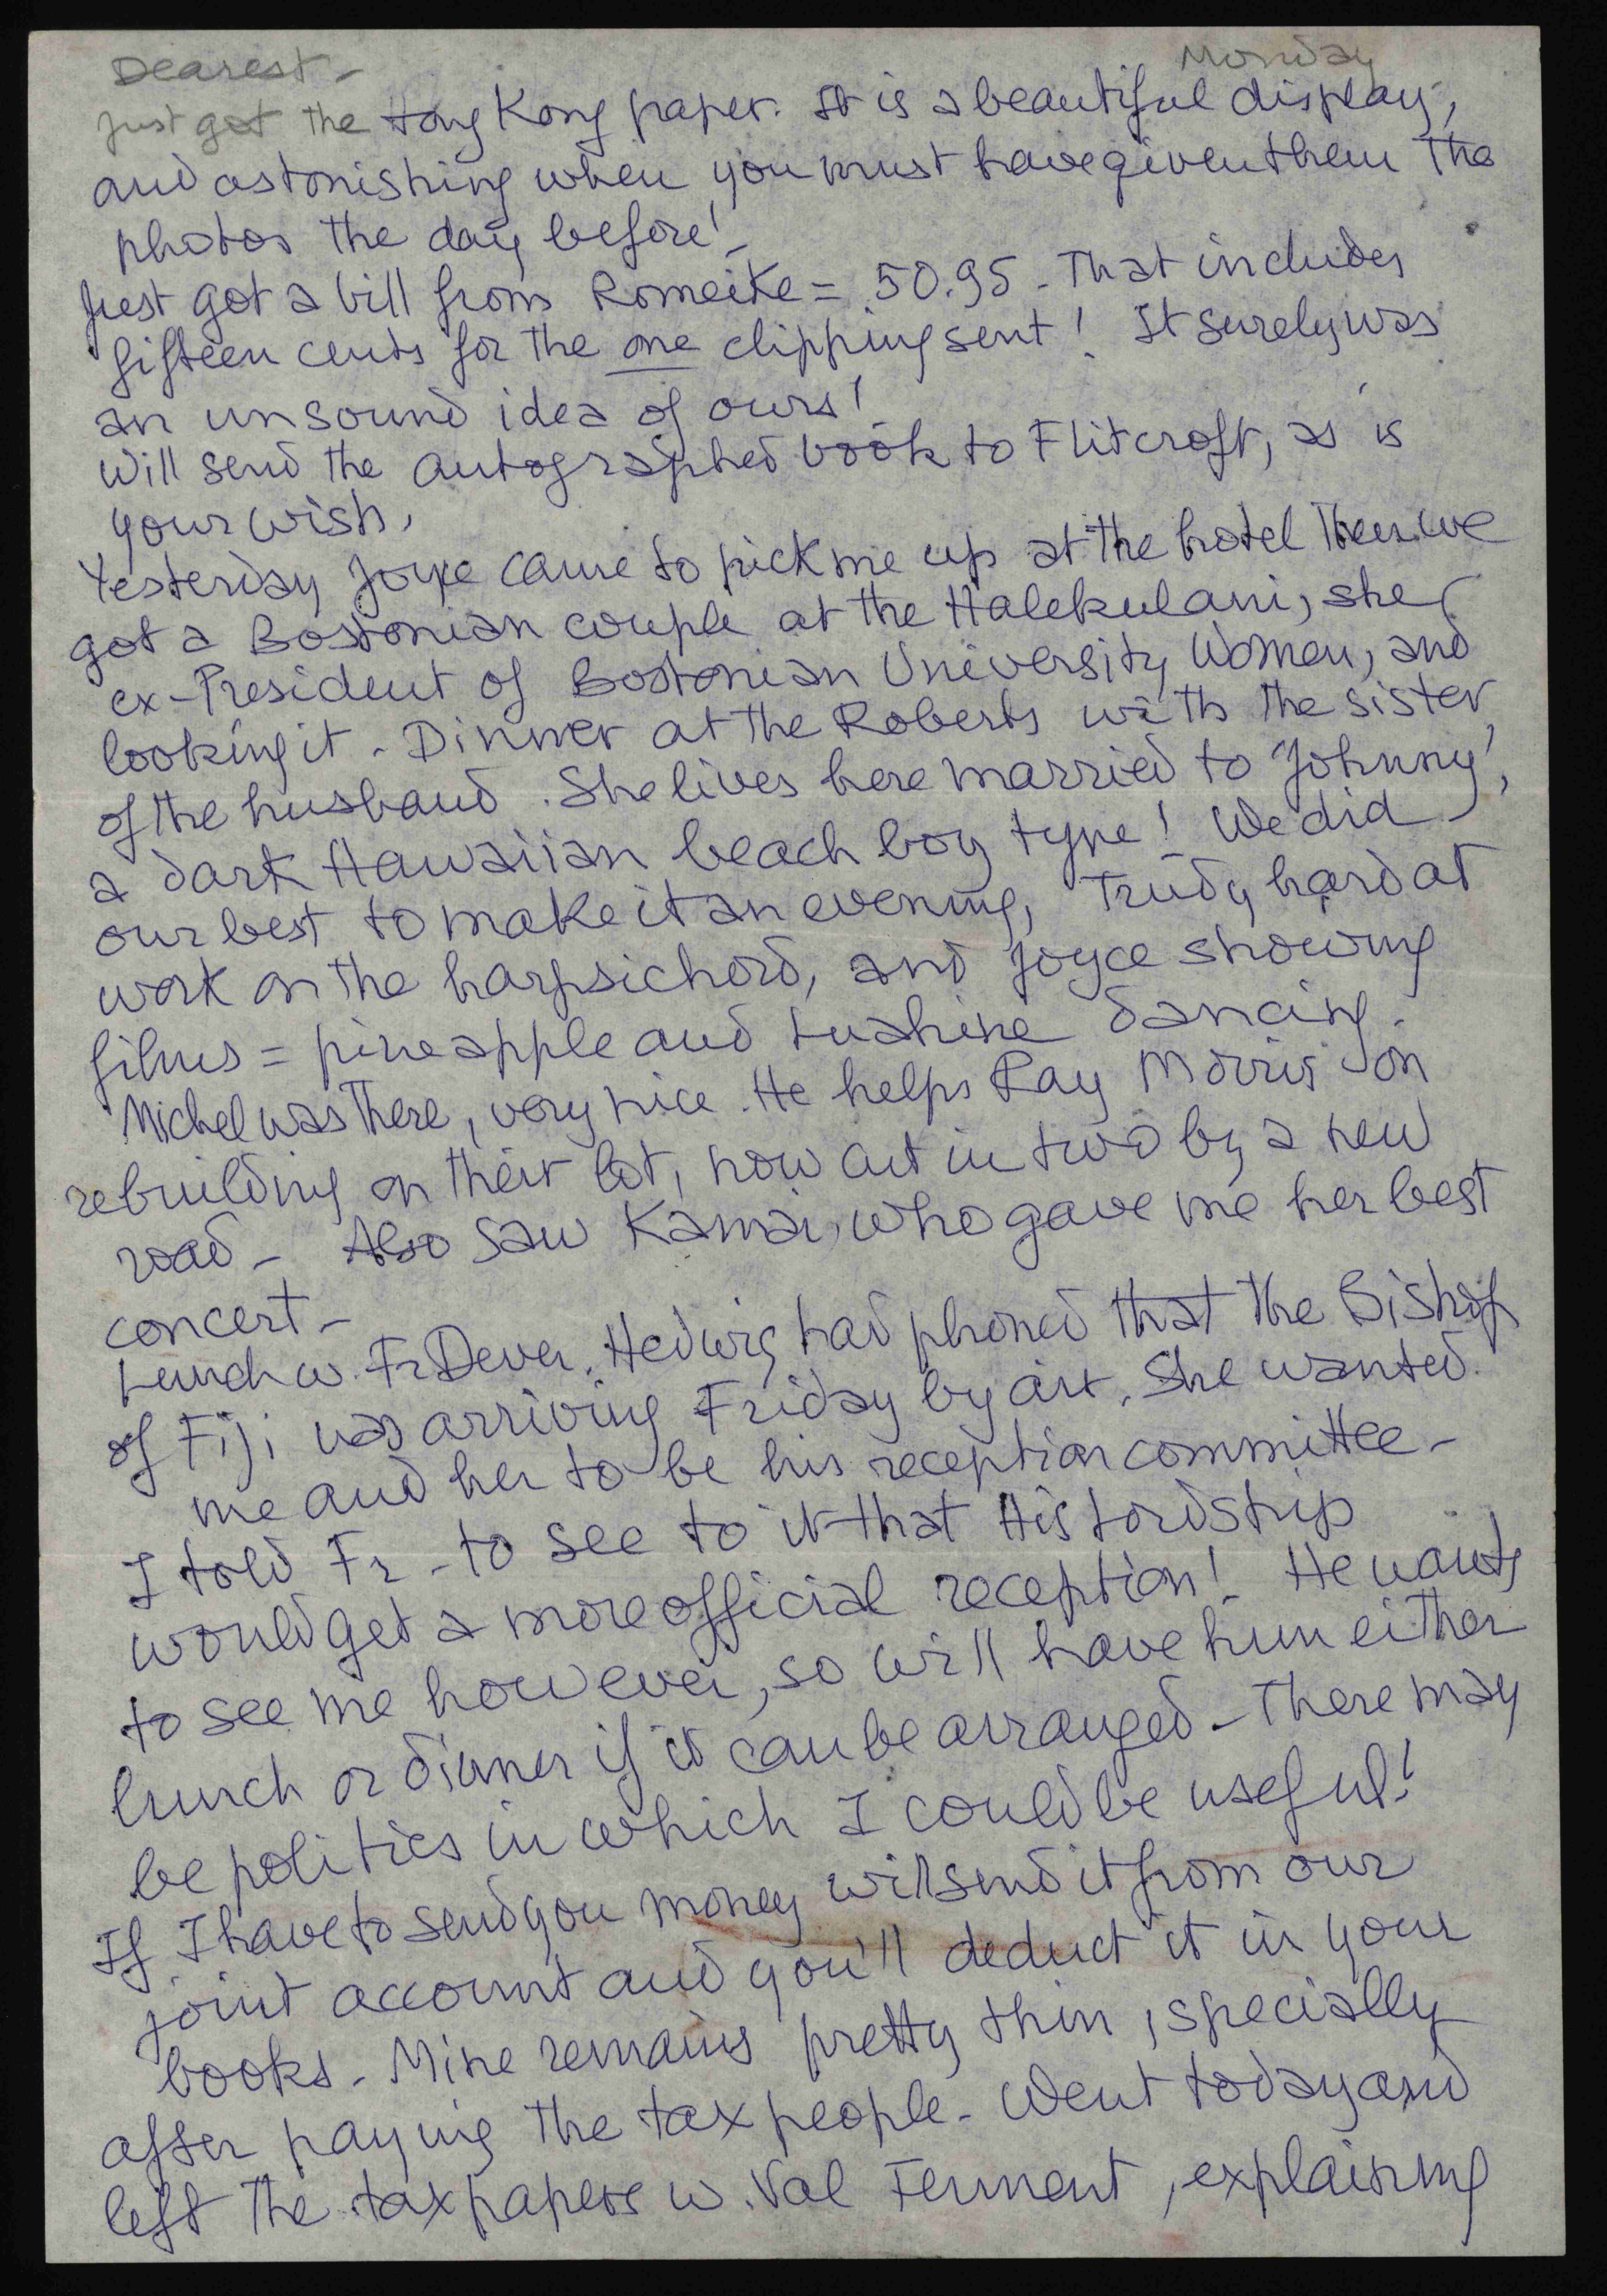 Dearest - Monday
Just got the Hong Kong paper. It is a beautiful display,
and astonishing when you must have given them the
photos the day before! -
Just got a bill from Romeike = 50.95 - That includes
fifteen cents for the one clipping sent! It surely was
an unsound idea of ours!
Will send the autographed book to Flitcroft, as is
your wish.
Yesterday Joyce came to pick me up at the hotel then we
got a Bostonian couple at the Halekulani, she
ex-President of Bostonian University Women, and
looking it - Dinner at the Roberts with the sister
of the husband. She lives here married to "Johnny",
a dark Hawaiian beach boy type! We did
our best to make it an evening, Trudy hard at
work on the harpsichord, and Joyce showing
films = pineapple and Luahine dancing.
Michel was there, very nice. He helps Ray Morris on
rebuilding on their lot, now cut in two by a new
road - Also saw Kamai, who gave me her best
concert -
Lunch w. Fr Dever. Hedwig had phoned that the Bishop
of Fiji was arriving Friday by air. She wanted
me and her to be his reception committee -
I told Fr - to see to it that His Lordship
would get a more official reception! He wants
to see me however, so will have him either
lunch or dinner if it can be arranged - There may
be politics in which I could be useful!
If I have to send you money will send it from our
joint account and you'll deduct it in your
books - Mine remains pretty thin, specially
after paying the tax people - Went today and
left the tax papers w. Val Ferment, explaining